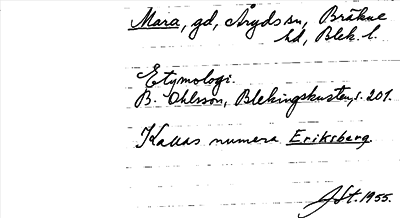 Mara, gd, Åryds sn, Bräkne
hd, Blek. l.
Etymologi.
B. Ohlsson, Blekingskusten, s. 201.
Kallas numera Eriksberg.
1955.